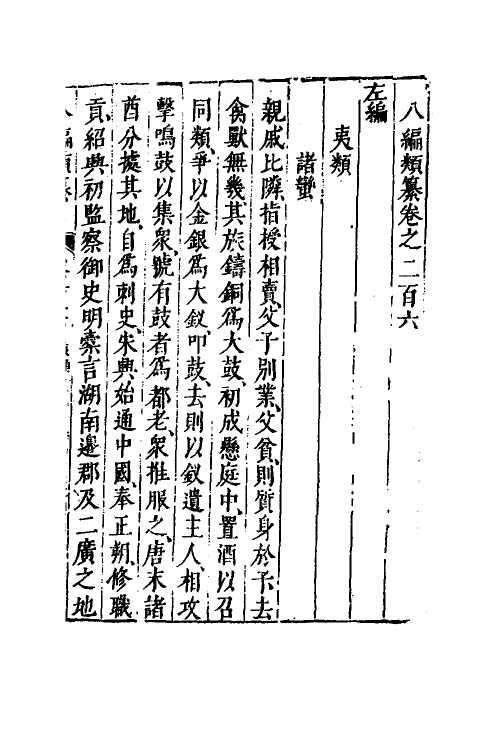 八編類纂卷之二百六
左編
夷類
諸蠻
親戚比隣、指授相賣、父子別業、父貧、則質身於子、去
禽獸無幾、其族鑄銅爲大鼓、初成懸庭中、置酒以召
同類、爭以金銀爲大釵、叩鼓、去則以釵遺主人、相攻
擊鳴鼓以集衆、號有鼓者爲都老、衆推服之、唐末諸
酋分據其地、自爲刺史、宋興始通中國、奉正朔、修職
貢、紹興初監察御史明橐言湖南邊郡及二廣之地